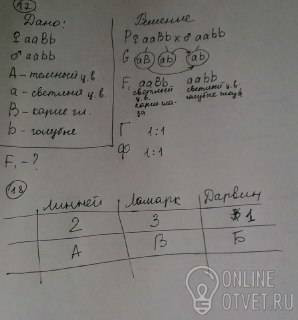 12
Дано:
♀ aaBb
♂ aabb
A - темный цв
a - светлый цв.
B - карие гл.
b - голубые
F₁ - ?
Решение
P ♀ aaBb x ♂ aabb
G aB ab ab
F₁ aaBb aabb
светлый ц.в. карие гла-за
светлый ц.в. голубые
Г 1:1
Ф 1:1
18
Линней Ламарк Дарвин
2 3 1
А В Б
ONLINE
OTVET.RU